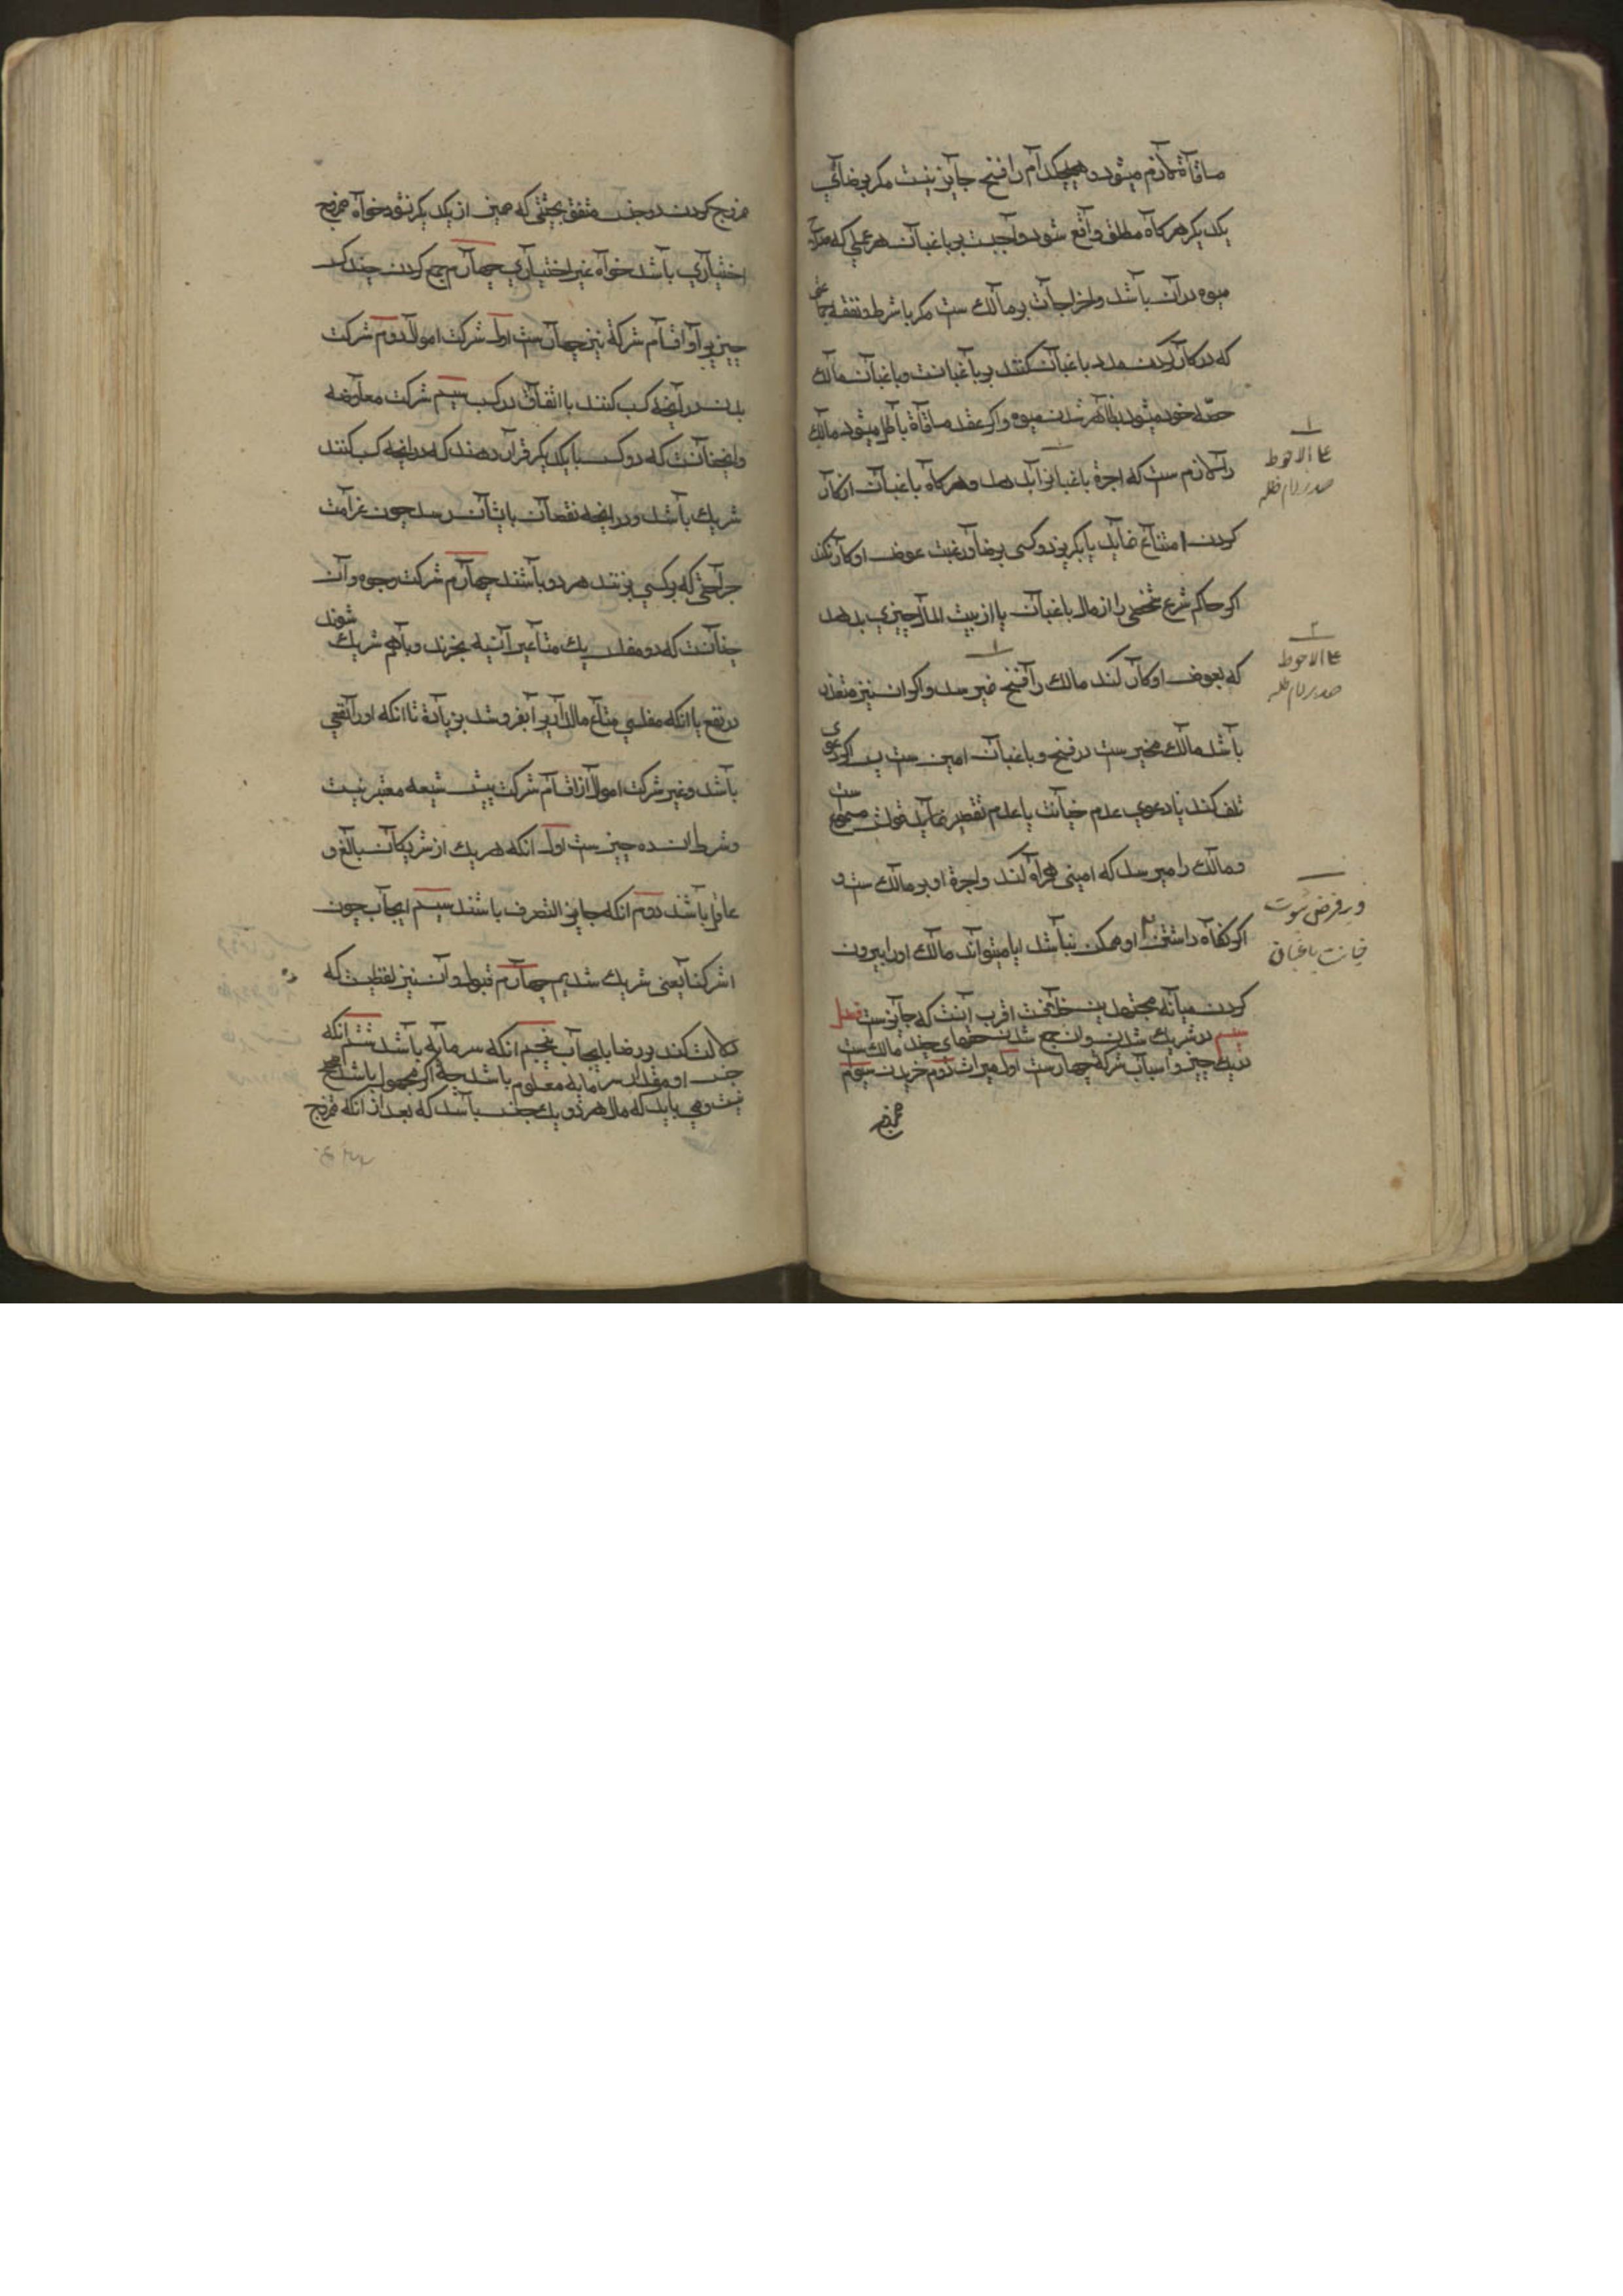 مساقاة لازم میشود و هیچکدام را فسخ جایز نیست مکر برضای
یکدیکر هرکاه مطلق واقع شود واجبست بر باغبان هر عملی که
میوه در آن باشد و اخراجات بر مالک ست مکر با شرط و نفقه جماعتی
که در کار کردن مدد باغبان کنند بر باغبانست و باغبان مالک
حصّه خود میشود بظاهر شدن میوه و اکر عقد مساقاة باطل میشود مالک
را لازم ست که اجرة باغبانرا بدهد و هرکاه باغبان از کار
کردن امتناع نماید یا بکریزد و کسی برضا و رغبت عوض او کار نکند
اکر حاکم شرع شخصی را از مال باغبان یا از بیت المال چیزی بدهد
که بعوض او کار کند مالک را فسخ نمیرسد و اکر ان نیز متعذر
باشد مالک مخیر ست در فسخ و باغبان امین ست پس اکر دعوی
تلف کند یا دعوی عدم خیانت یا عدم تقصیر نماید قولش مسموع ست
و مالک را میرسد که امینی همراه او کند و اجرة او بر مالک ست و
اکر نکاه داشتن او ممکن نباشد ایا میتواند مالک او را بیرون
کردن میانه مجتهدین خلافست اقرب آنست که جایز ست فصل
سیم در شریک شدن و ان جمع شدن حقهای چند مالک ست
در یک چیز و اسباب شرکة چهار ست اول میراث دوم خریدن سیوم
ممزوج
۱
علی الاحوط
صدر دام ظله
۲
علی الاحوط
صدر دام ظله
و بر فرض ثبوت
خیانت باغبان
ممزوج کردن دو جنس متفق بحیثی که ممیز از یکدیکر نشود خواه ممزوج
اختیاری باشد خواه غیر اختیاری چهارم جمع کردن چند کس
چیزیرا و اقسام شرکة نیز چهار ست اول شرکت اموال دوم شرکت
بدن در آنچه کسب کنند با اتفاق در کسب سیم شرکت معاوضه
و این چنانست که دو کس با یکدیکر قرار دهند که در آنچه کسب کنند
شریک باشد و در آنچه نقصان باشان رسد چون غرامت
جراحتی که بر کسی بزنند هر دو باشند چهارم شرکت وجوه و آن
چنانست که دو مفلس یک متاعیرا نسیه بخرند و باهم شریک شوند
در نفع یا انکه مفلسی متاع مالداریرا بفروشد بزیادة تا انکه او را نفعی
باشد و غیر شرکت اموال از اقسام شرکت پیش شیعه معتبر نیست
و شرط ان ده چیز ست اول انکه هر یک از شریکان بالغ و
عاقل باشد دوم انکه جایز التصرف باشند سیم ایجاب چون
اشترکنا یعنی شریک شدیم چهارم قبول و آن نیز لفظیست که
دلالت کند بر رضا بایجاب پنجم انکه سرمایه باشد ششم انکه
جنس او و مقدار سرمایه معلوم باشد چه اکر مجهول باشد صحیح
نیست و می باید که مال هر دو یک جنس باشد که بعد از انکه ممزوج